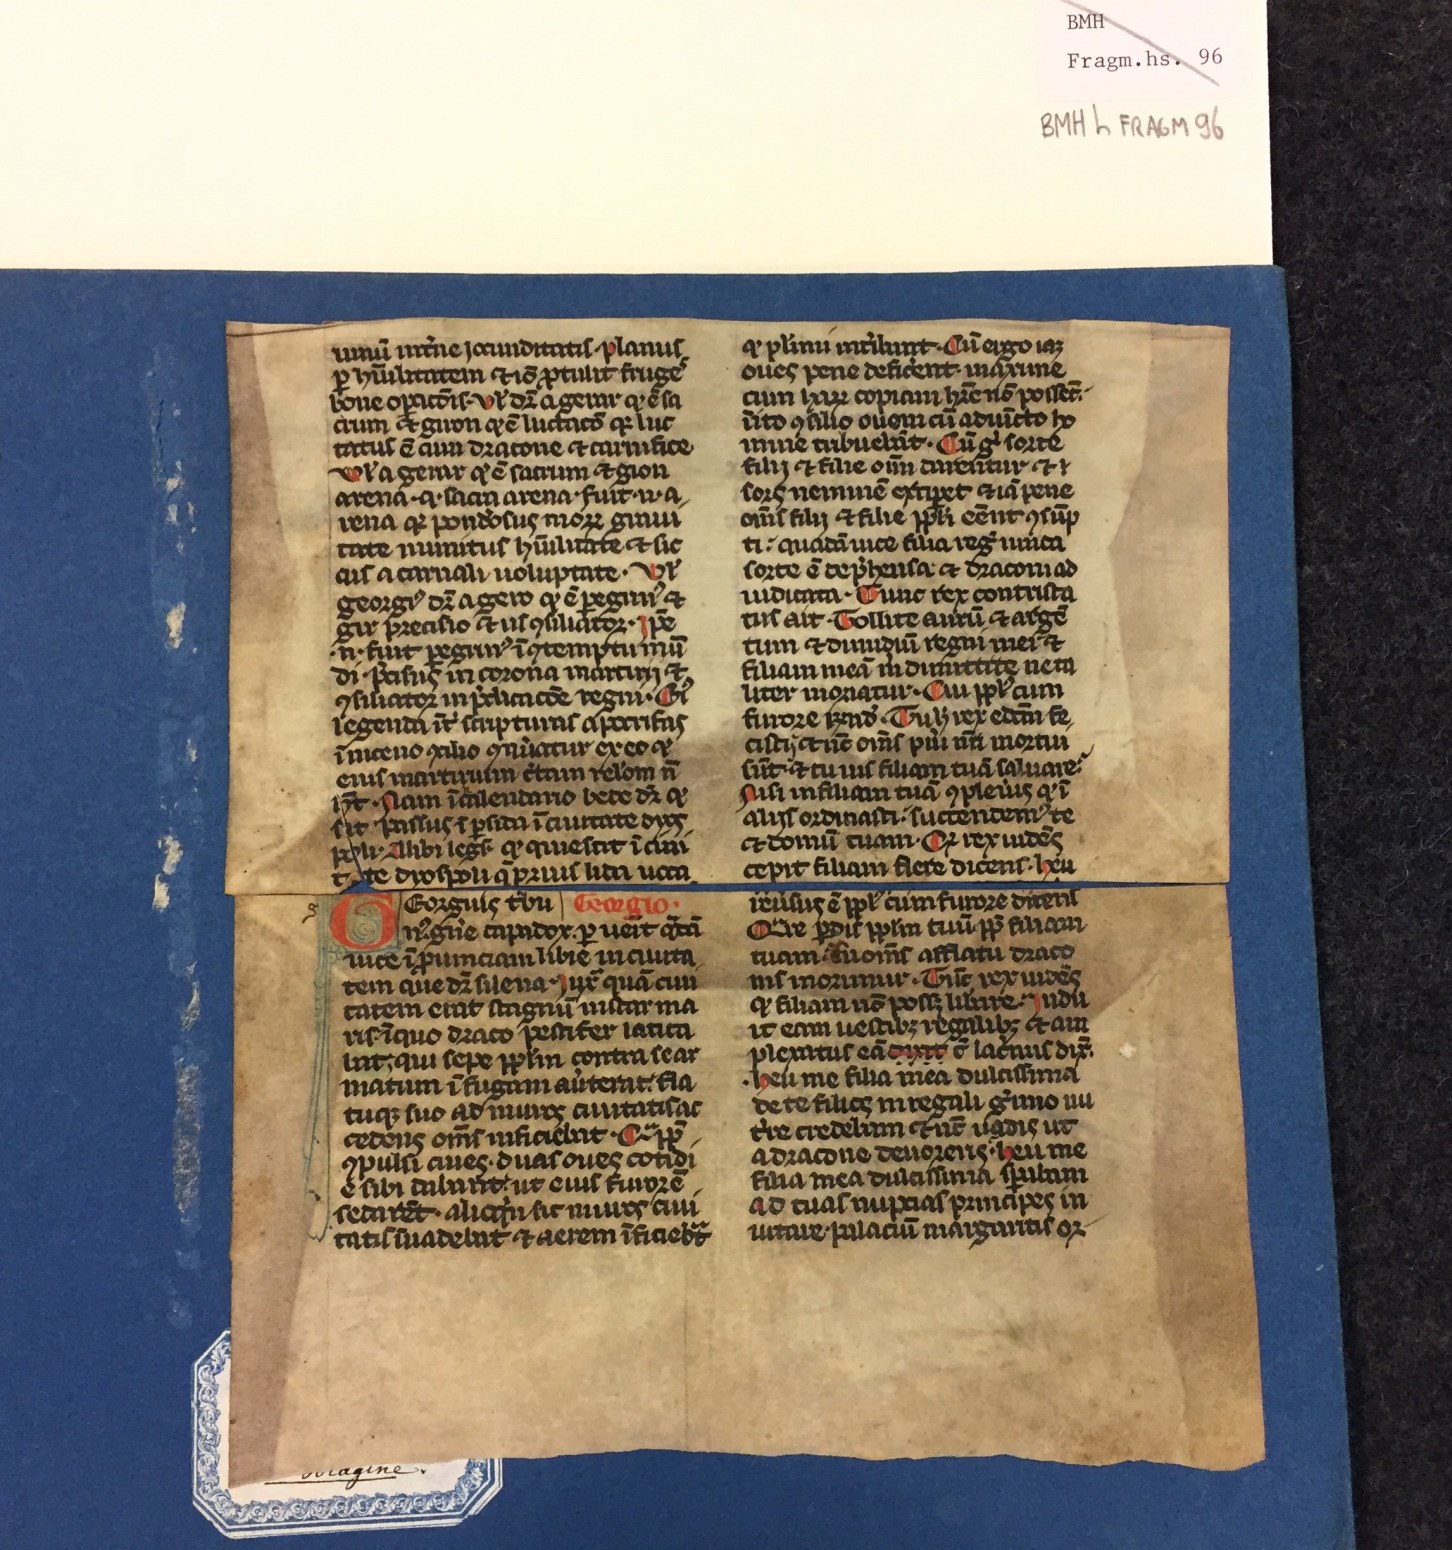 BMH
Fragm.hs. 96
BMH h FRAGM 96
uinū int̄ne iocunditatis · planus
ꝑ hūilitatem ⁊ iō ꝓtulit fruge
bone oꝑacōis · Ul̓ dr̄ a gerar qḋ ē sa
crum ⁊ gyon qḋ ē luctacō qr luc
tatus ē cum dracone ⁊ carnifice
Ul̓ a gerar qḋ ē sacrum ⁊ gion
arena · q · sacra arena · fuit · n · a
rena qr pondosus moꝝ graui
tate minutus hūilitate ⁊ sic
cus a carnali uoluptate · Ul̓
georgiꝰ dr̄ a gero qḋ ē ꝑegrinꝰ ⁊
gir precisio ⁊ us ꝯsiliator · Ipē
· n · fuit ꝑegrinꝰ ī ꝯtemptu mū
di · p̄cisus in corona martirij ⁊
ꝯsiliator in p̄dicacōe regni · Ei
legenda īt̓ scripturas apocrifas
ī niceno ꝯcilio ꝯnūatur ex eo qḋ
eius martirium c̄tam rel̓om n̄
ht̄ · Nam ī calendario bede dr̄ qḋ
sit passus ī ꝑsida ī ciuitate dyos
poli · Alibi legr̓ qḋ quiescit ī ciui
tate dyospoli q̄ prius lida uoca
Eorgius t̄bu Georgio ·
nꝰ gn̄e capadox · ꝑ uēit q̄dā
uice ī ꝓuinciam libie in ciuita
tem que dr̄ silena · Iux̄ quā ciui
tatem erat stagnū instar ma
ris · ī quo draco pestifer latita
bat; qui sepe ppl̓m contra se ar
matum ī fugam aūterat · fla
tuqꝫ suo ad muros ciuitatis ac
cedens om̄s inficiebat · Qᵃ pp̄
ꝯpulsi ciues · duas oues cotidi
e sibi dabant · ut eius furorē
sedarēt · alioq̓n sic muros ciui
tatis īuadebat ⁊ aerem īficieb̄t
qḋ pl̓imi int̓ibant · Cū ergo iaꝫ
oues pene deficerent · maxime
cum haꝝ copiam hr̄e nō possēt ·
īito ꝯsilio ouem cū adiūcto ho
mine tribuebāt · Cū gͥ sorte
filij ⁊ filie oīm darentur ⁊
sors neminē exciꝑet ⁊ iā pene
om̄s filij ⁊ filie ppl̓i eēnt ꝯsūp
ti · quadā uice filia regꝭ unica
sorte ē dep̄hensa · ⁊ draconi ad
iudicata · Tunc rex contrista
tus ait · Tollite aurū ⁊ argē
tum ⁊ dimidiū regni mei ⁊
filiam meā m̄ dimittite ne ta
liter moriatur · Cui ppl̓s cum
furore · Tu o rex edc̄m fe
cisti ⁊ nc̄ om̄s pūi nr̄i mortui
sūt · ⁊ tu uis filiam tuā saluare ·
Nisi in filiam tuā ꝯpleūis qḋ ī
alijs ordinasti · succendemꝰ te
⁊ domū tuam · Qḋ rex uidēs
cepit filiam flere dicens · heu
reūsus ē ppl̓s cum furore dicens
Qᵃre ꝑdis ppl̓m tuū pp̄ filiam
tuam · En om̄s afflatu draco
nis morimur · Tūc rex uidēs
qḋ filiam nō possꝫ libare · Indu
it eam uestibꝫ regalibꝫ ⁊ am
plexatus eā dixit c̄ lacrimis dix̄ ·
· heu me filia mea dulcissima
de te filios in regali gremio nu
t̓re credebam ⁊ nc̄ uadis ut
a dracone deuoreris · heu me
filia mea dulcissima speraban
ad tuas nupcias principes in
uitare · palaciū margaritis or
Voragine.